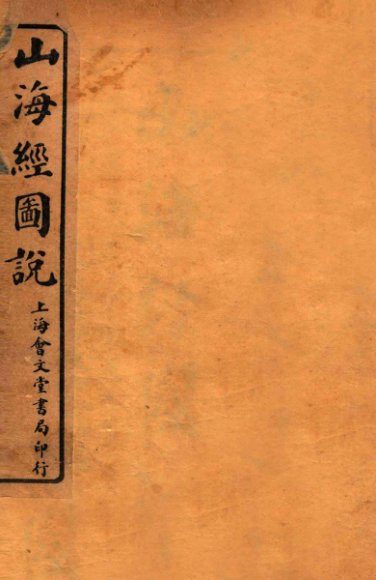 山海經圖說
上海會文堂書局印行